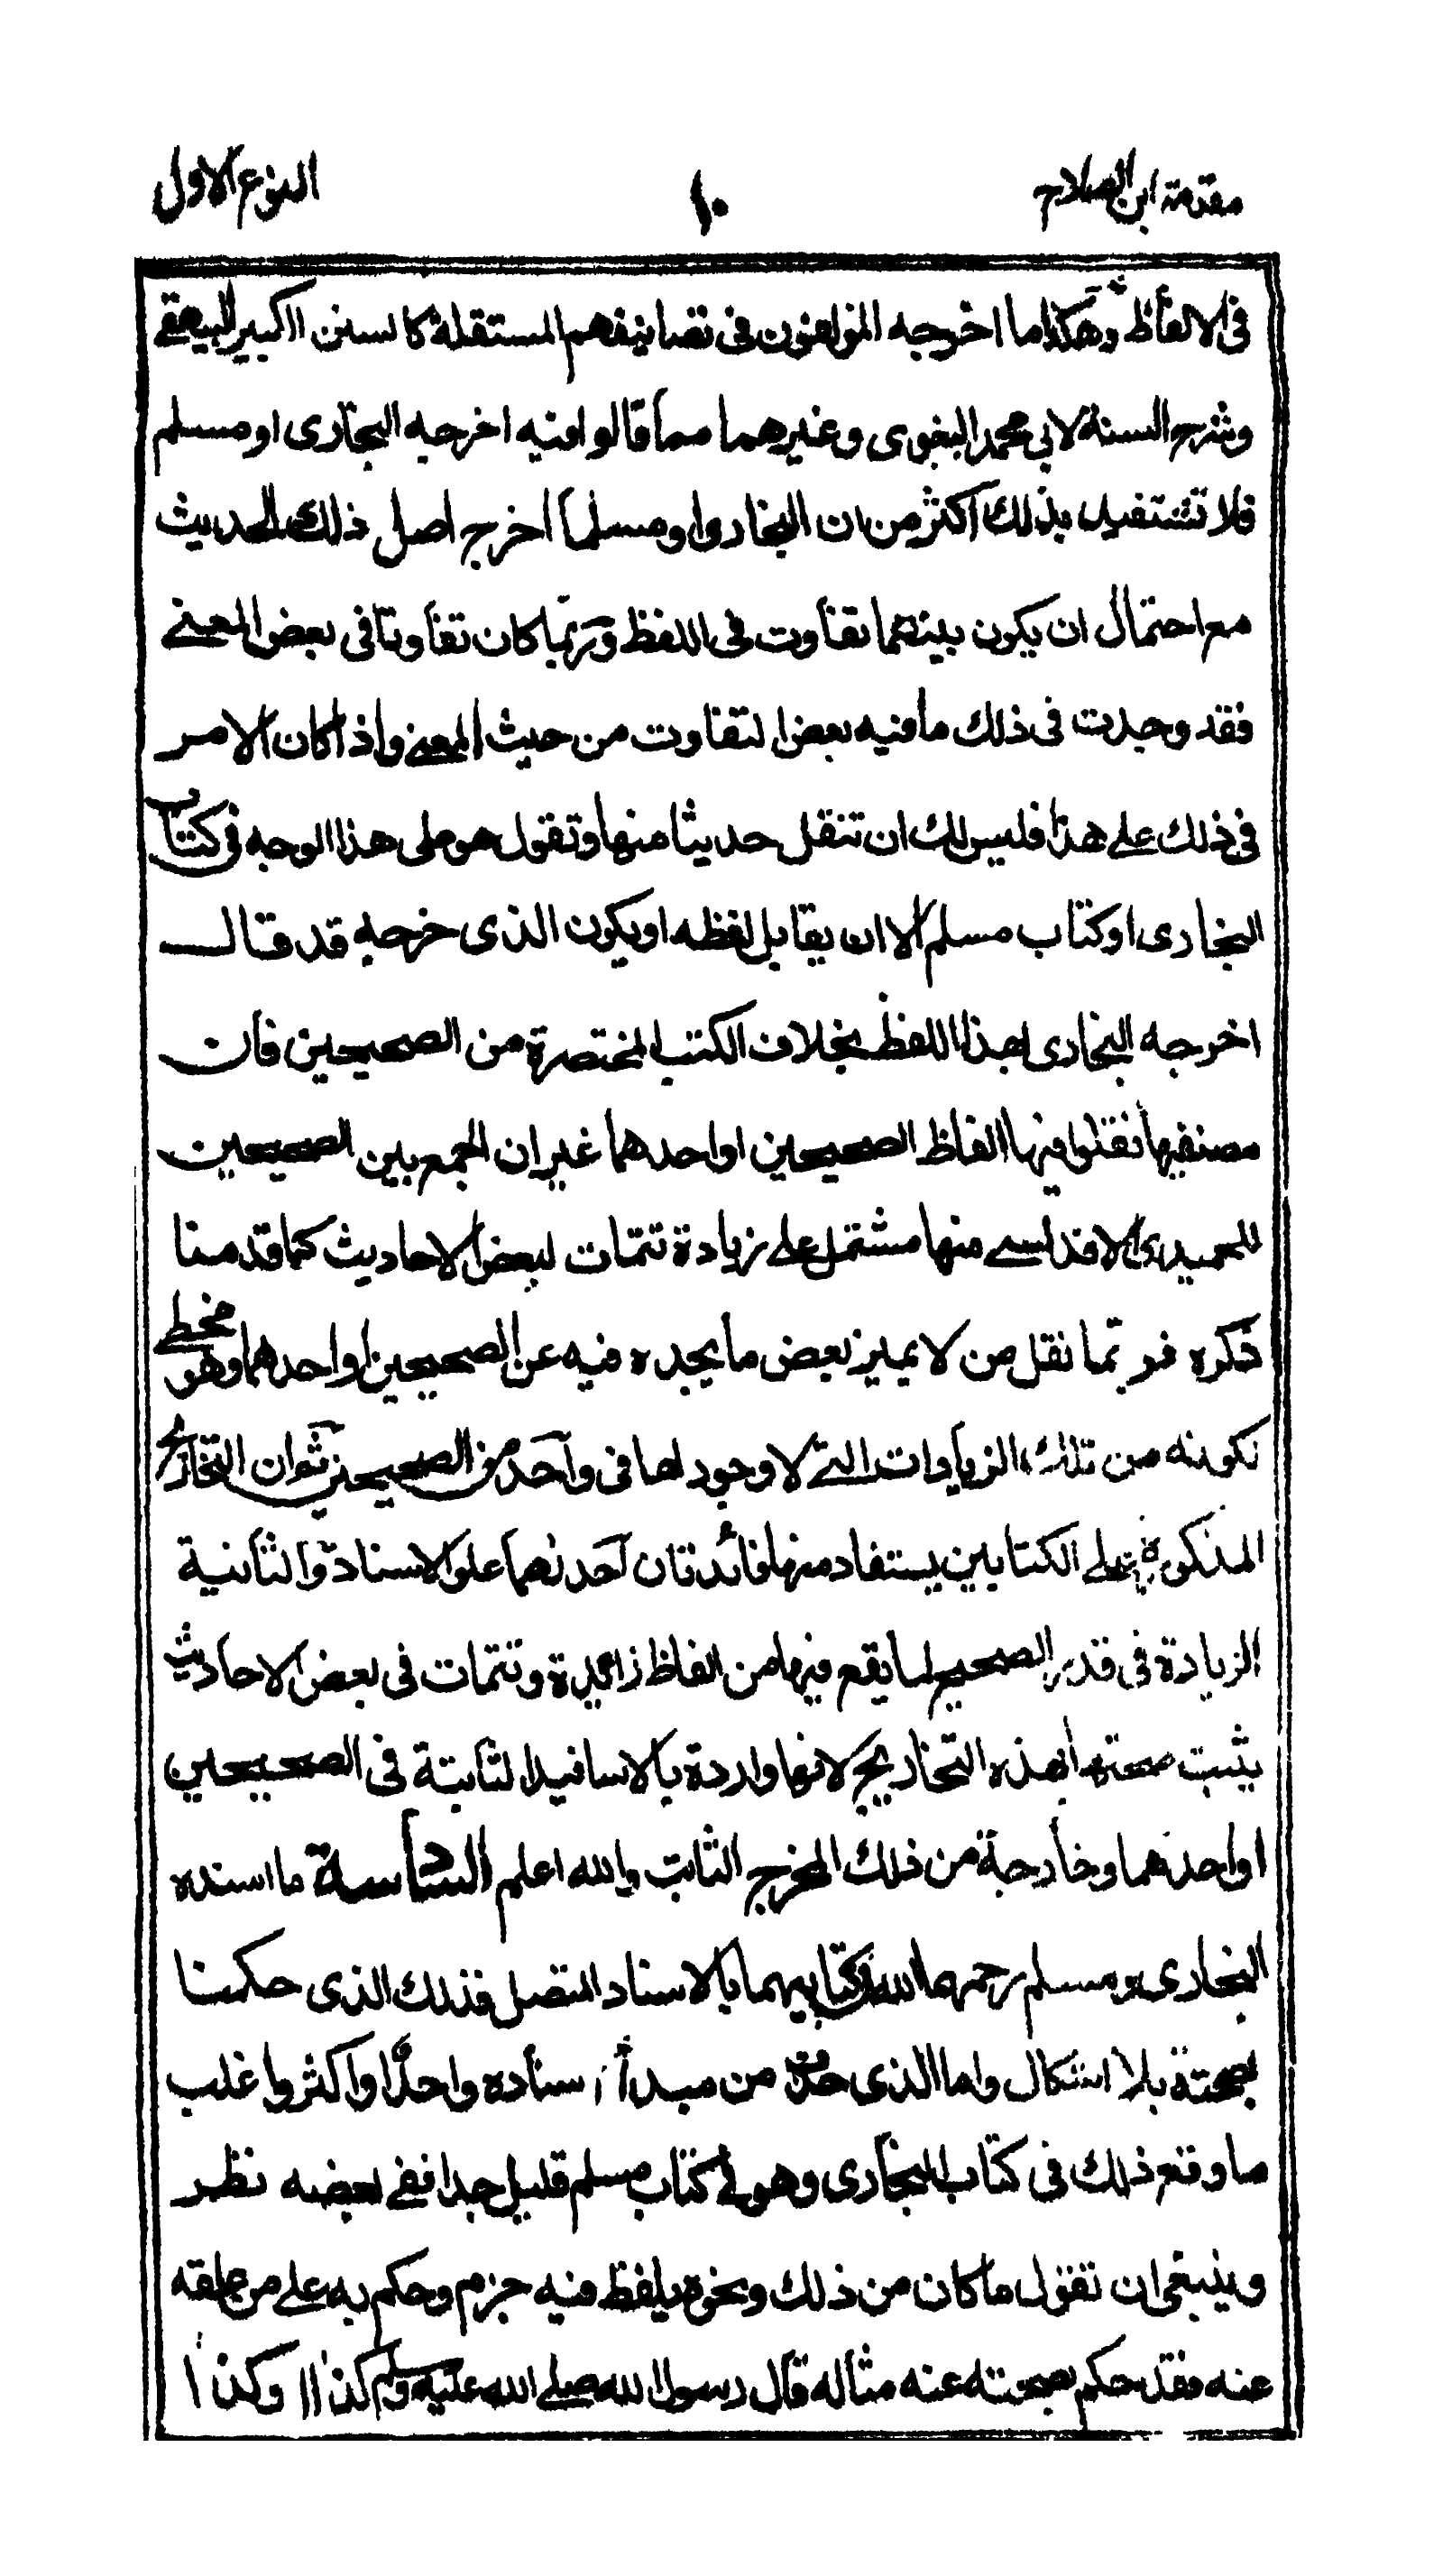 مقدمة ابن الصلاح
١٠
النوع الاول
فى الالفاظ وهكذا ما اخرجه المؤلفون فى تصانيفهم المستقلة كالسنن الكبير للبيهقے
وشرح السنة لابى محمد البغوى وغيرهما مما قالوا فيه اخرجه البخارى او مسلم
فلا تستفيد بذلك اكثر من ان البخارى او مسلما اخرج اصل ذلك الحديث
مع احتمال ان يكون بينهما تفاوت فى اللفظ وربما كان تفاوتا فى بعض المعنے
فقد وجدت فى ذلك ما فيه بعض التفاوت من حيث المعنے واذا كان الامر
فى ذلك علے هذا فليس لك ان تنقل حديثا منها وتقول هو على هذا الوجه فى كتاب
البخارى او كتاب مسلم الا ان يقابل لفظه او يكون الذى خرجه قد قال
اخرجه البخارى بهذا اللفظ بخلاف الكتب المختصرة من الصحيحين فان
مصنفيها نقلوا فيها الفاظ الصحيحين او احدهما غير ان الجمع بين الصحيحين
للحميدى الاندلسے منها مشتمل علے زيادة تتمات لبعض الاحاديث كما قدمنا
ذكره فربما نقل من لا يميز بعض ما يجده فيه عن الصحيحين او احدهما وهو مخطے
لكونه من تلك الزيادات التے لا وجود لها فى واحد من الصحيحين ثم ان التخاريج
المذكورة علے الكتابين يستفاد منها فائدتان احدىهما علو الاسناد والثانية
الزيادة فى قدر الصحيح لما يقع فيها من الفاظ زائدة وتتمات فى بعض الاحاديث
يثبت صحتها بهذه التخاريج لانها واردة بالاسانيد الثابتة فى الصحيحين
او احدهما وخارجة من ذلك المخرج الثابت والله اعلم السادسة ما اسنده
البخارى ومسلم رحمهما الله فى كتابيهما بالاسناد المتصل فذلك الذى حكمنا
بصحته بلا اشكال واما الذى حذف من مبدأ اسناده واحد او اكثر واغلب
ما وقع ذلك فى كتاب البخارى وهو فے كتاب مسلم قليل جدا ففے بعضه نظر
وينبغى ان تقول ما كان من ذلك ونحوه بلفظ فيه جزم وحكم به علے من علقه
عنه فقد حكم بصحته عنه مثاله قال رسول الله صلے الله عليه وسلم كذا وكذا